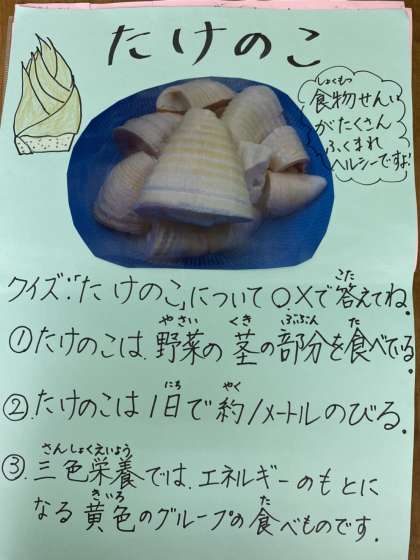 たけのこ
しょくもつ
食物せんい
がたくさん
ふくまれ
ヘルシーですよ!
クイズ:「たけのこ」について○.×で答えてね。
こた
①たけのこは、野菜の茎の部分を食べている。
やさい くき ぶぶん た
②.たけのこは1日で約1メートルのびる。
にち やく
③.三色栄養では、エネルギーのもとに
さんしょくえいよう
なる黄色のグループの食べものです。
きいろ た